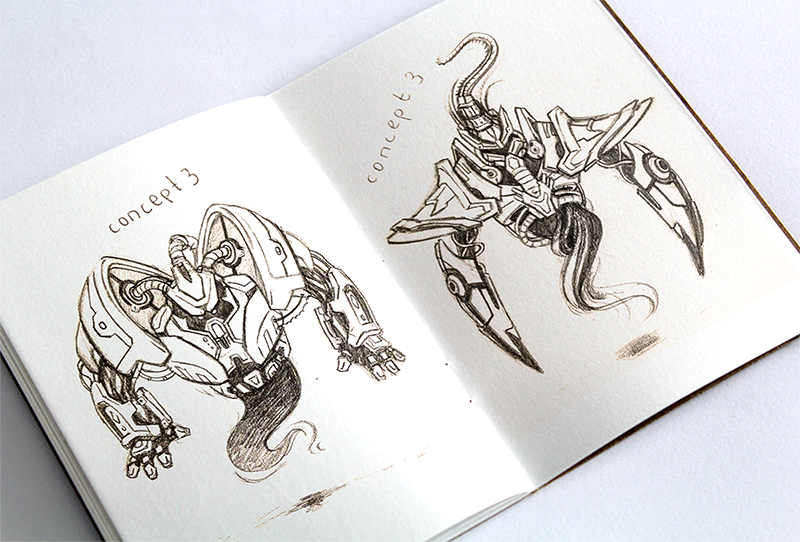 concept 3
concept 3